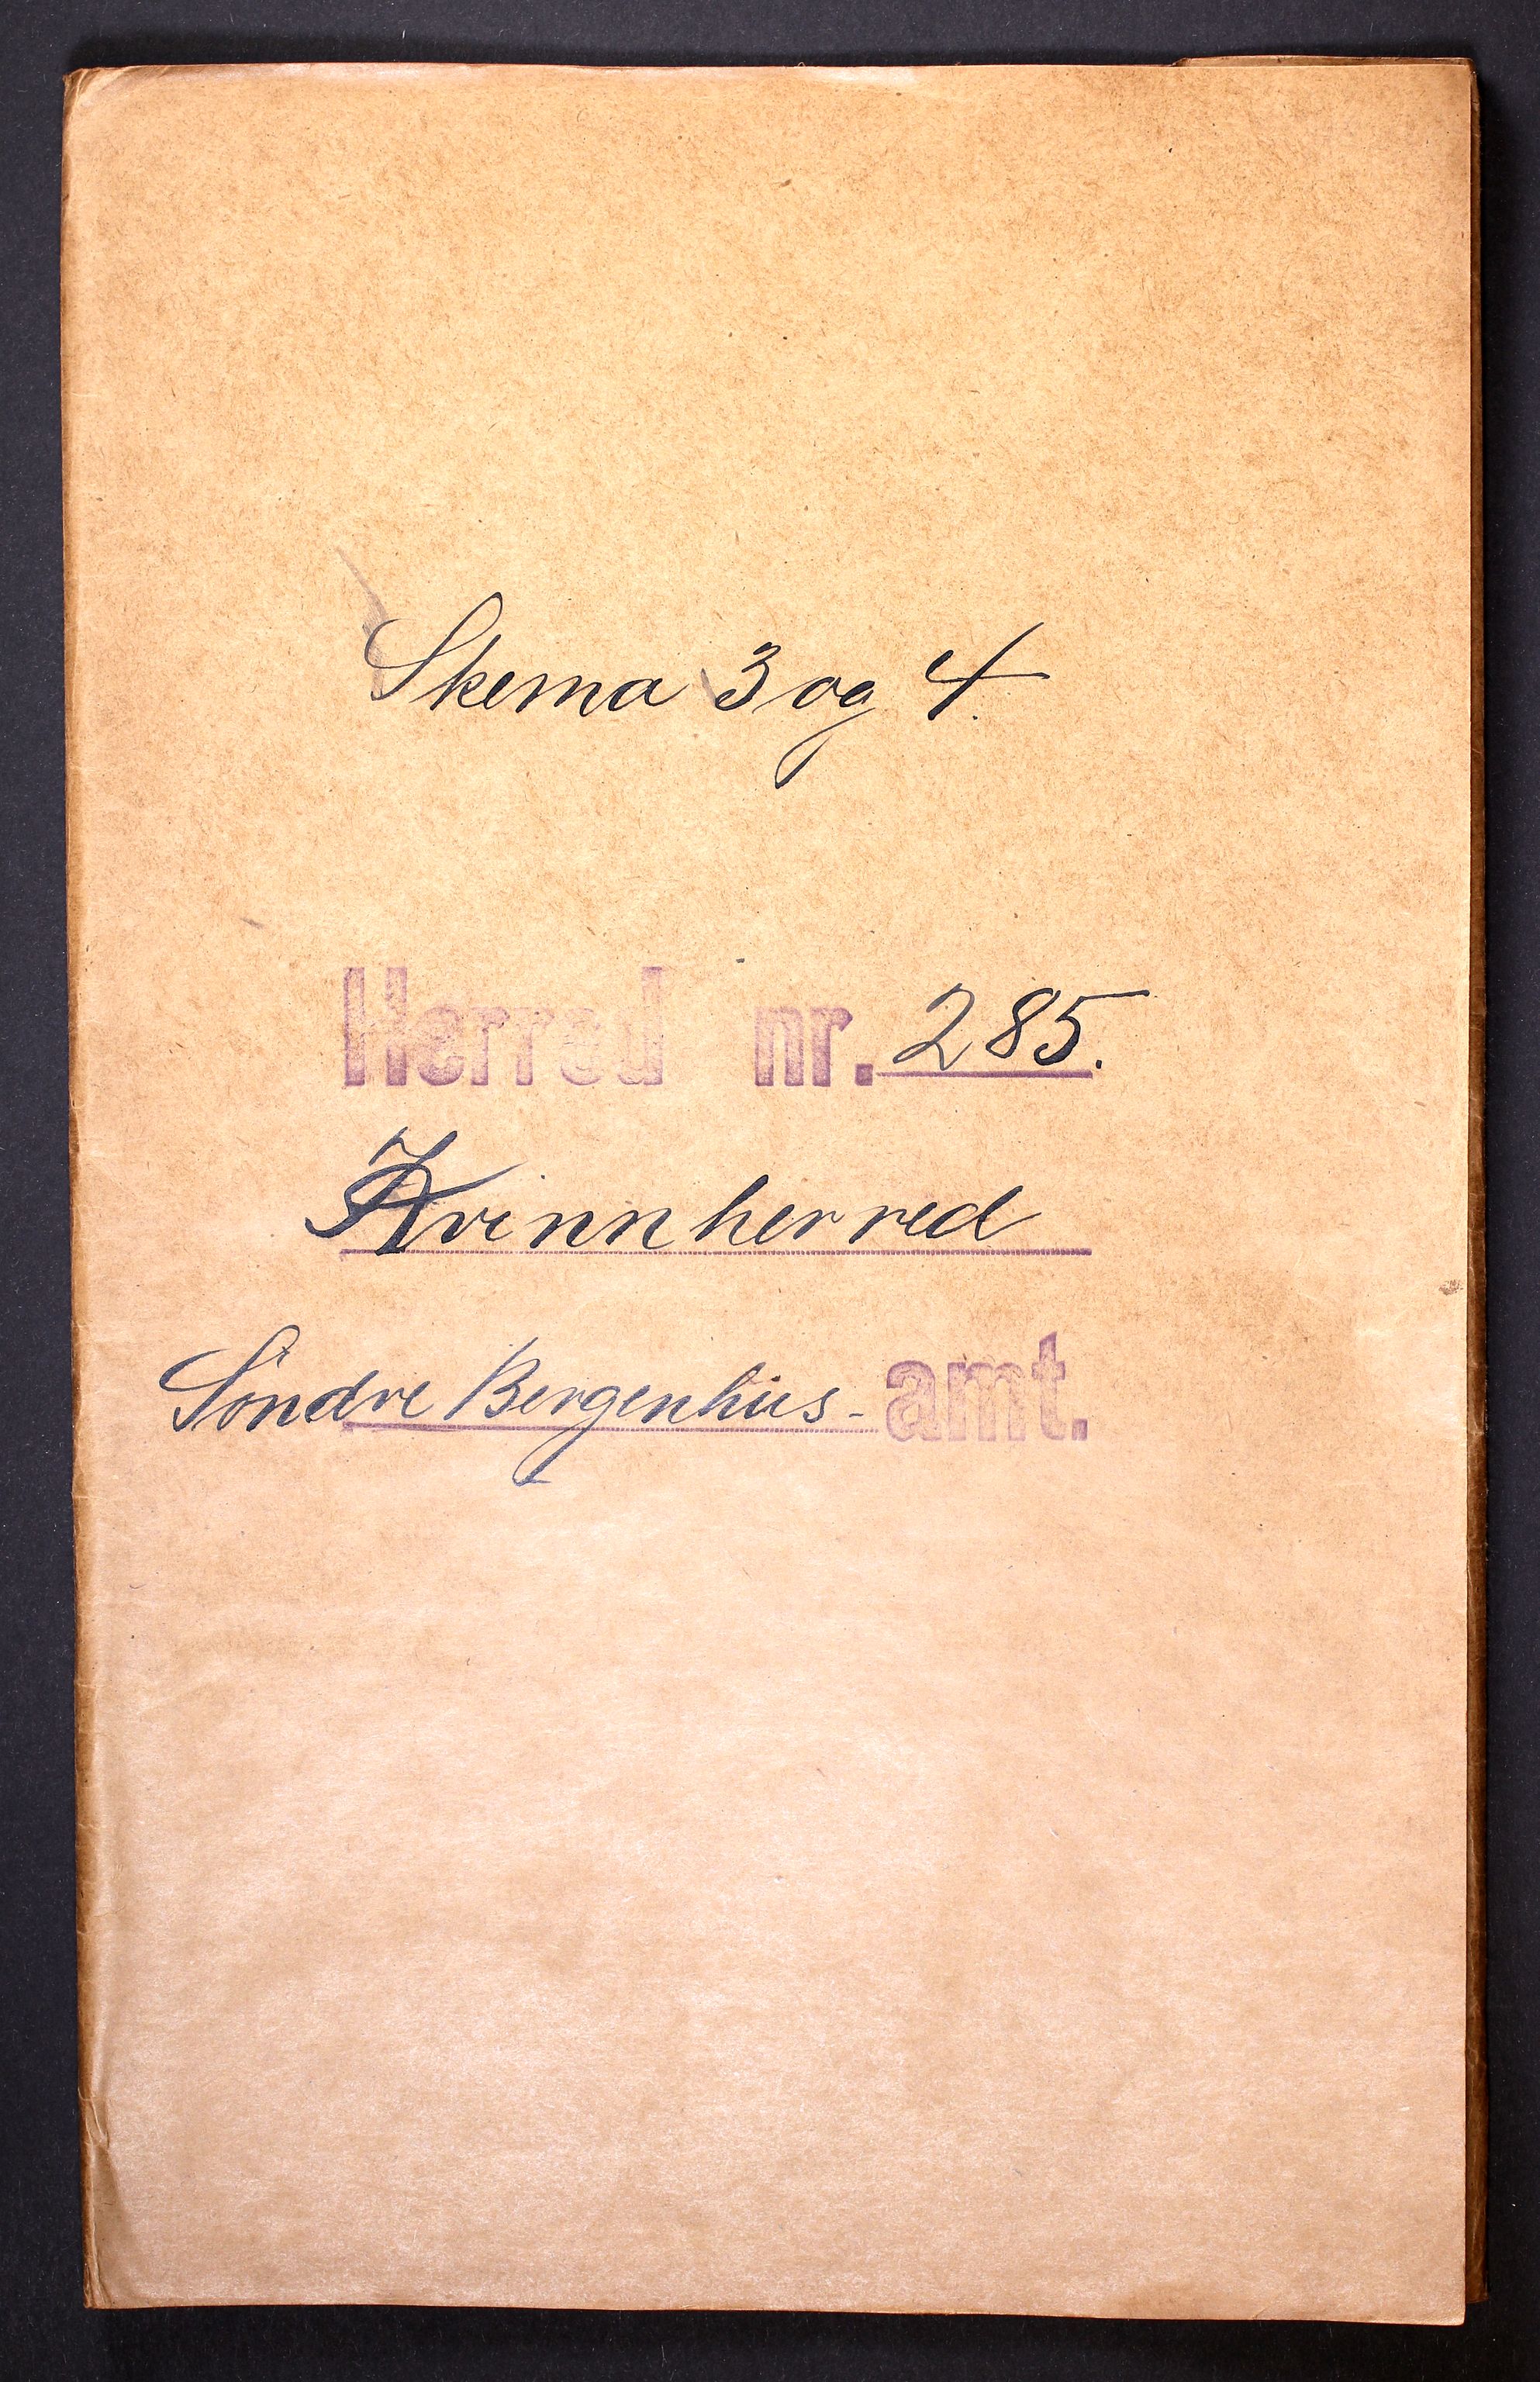 Skema 3 og 4.
Herred nr. 285.
Kvinnherred
Søndre Bergenhus - amt.